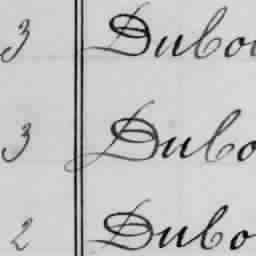 3 Dubou
3 Dubo
2 Dubo